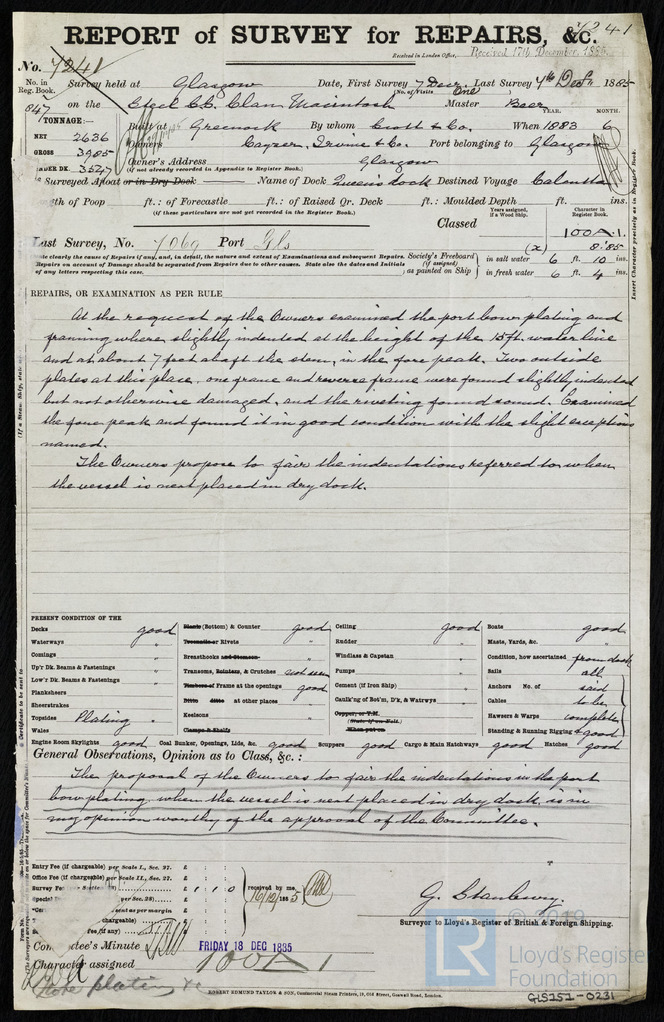 REPORT of SURVEY for REPAIRS, &c. 7241
Received in London Office, Received 17th December, 1885
No. 7241
No. in Reg. Book. Survey held at Glasgow Date, First Survey 7 Decr. Last Survey 7th Decr 1885
(No. of Visits One)
847 on the Steel S.S. Clan Macintosh Master Beer
TONNAGE: YEAR. MONTH.
NET 2636 Built at Greenock By whom Scott & Co. When 1883 6
GROSS 3985 Owners Cayzer, Irvine & Co. Port belonging to Glasgow
UNDER DK. 3547 Owner's Address Glasgow
(if not already recorded in Appendix to Register Book.)
Surveyed Afloat or in Dry Dock Name of Dock Queen's dock Destined Voyage Calcutta
Length of Poop ft.: of Forecastle ft.: of Raised Qr. Deck ft.: Moulded Depth ft. ins.
(if these particulars are not yet recorded in the Register Book.)
Years assigned, if a Wood Ship. Character in Register Book.
Classed 100A1.
Last Survey, No. 7069 Port Gls (x) 8.85
State clearly the cause of Repairs if any, and, in detail, the nature and extent of Examinations and subsequent Repairs.
Repairs on account of Damage should be separated from Repairs due to other causes. State also the dates and Initials
of any letters respecting this case.
Society's Freeboard (if assigned) as painted on Ship
in salt water 6 ft. 10 ins.
in fresh water 6 ft. 4 ins.
Insert Character precisely as in Register Book.
REPAIRS, OR EXAMINATION AS PER RULE
At the request of the Owners examined the port bow plating and
framing where slightly indented at the height of the 15ft. water line
and at about 7 feet abaft the stem, in the fore peak. Two outside
plates at this place, one frame and reverse frame were found slightly indented
but not otherwise damaged, and the riveting found sound. Examined
the fore peak and found it in good condition with the slight exceptions
named.
The Owners propose to fair the indentations referred to when
the vessel is next placed in dry dock.
PRESENT CONDITION OF THE
Decks good
Waterways "
Comings "
Up'r Dk. Beams & Fastenings "
Low'r Dk. Beams & Fastenings "
Planksheers
Sheerstrakes
Topsides Plating "
Wales
Plank (Bottom) & Counter good
Treenails or Rivets "
Breasthooks and Stemson "
Transoms, Pointers, & Crutches not seen
Timbers or Frame at the openings good
Ditto ditto at other places "
Keelsons "
Clamps & Shelfs
Ceiling good
Rudder "
Windlass & Capstan "
Pumps "
Cement (if Iron Ship) "
Caulk'g of Bot'm, D'k, & Watrwys "
Copper, or Y.M.
(State if on Felt.)
When put on
Boats good
Masts, Yards, &c. "
Condition, how ascertained from deck
Sails all
Anchors No. of said
Cables to be
Hawsers & Warps complete
Standing & Running Rigging & good
Engine Room Skylights good Coal Bunker, Openings, Lids, &c. good Scuppers good Cargo & Main Hatchways good Hatches good
General Observations, Opinion as to Class, &c.:
The proposal of the Owners to fair the indentations in the port
bow plating, when the vessel is next placed in dry dock, is in
my opinion worthy of the approval of the Committee.
Entry Fee (if chargeable) per Scale I., Sec. 27. £ : :
Office Fee (if chargeable) per Scale II., Sec. 27. £ : :
Survey Fee £ 1 : 1 : 0 received by me, 16/12/1885
Special per Sec. 28) £ : :
as per margin
(if any)
G. Stanbury.
Surveyor to Lloyd's Register of British & Foreign Shipping.
Committee's Minute FRIDAY 18 DEC 1885
Character assigned 100A1
Note plating &c
ROBERT EDMUND TAYLOR & SON, Commercial Steam Printers, 19, Old Street, Goswell Road, London.
© 2019
LR
Lloyd's Register
Foundation
GLS151-0231